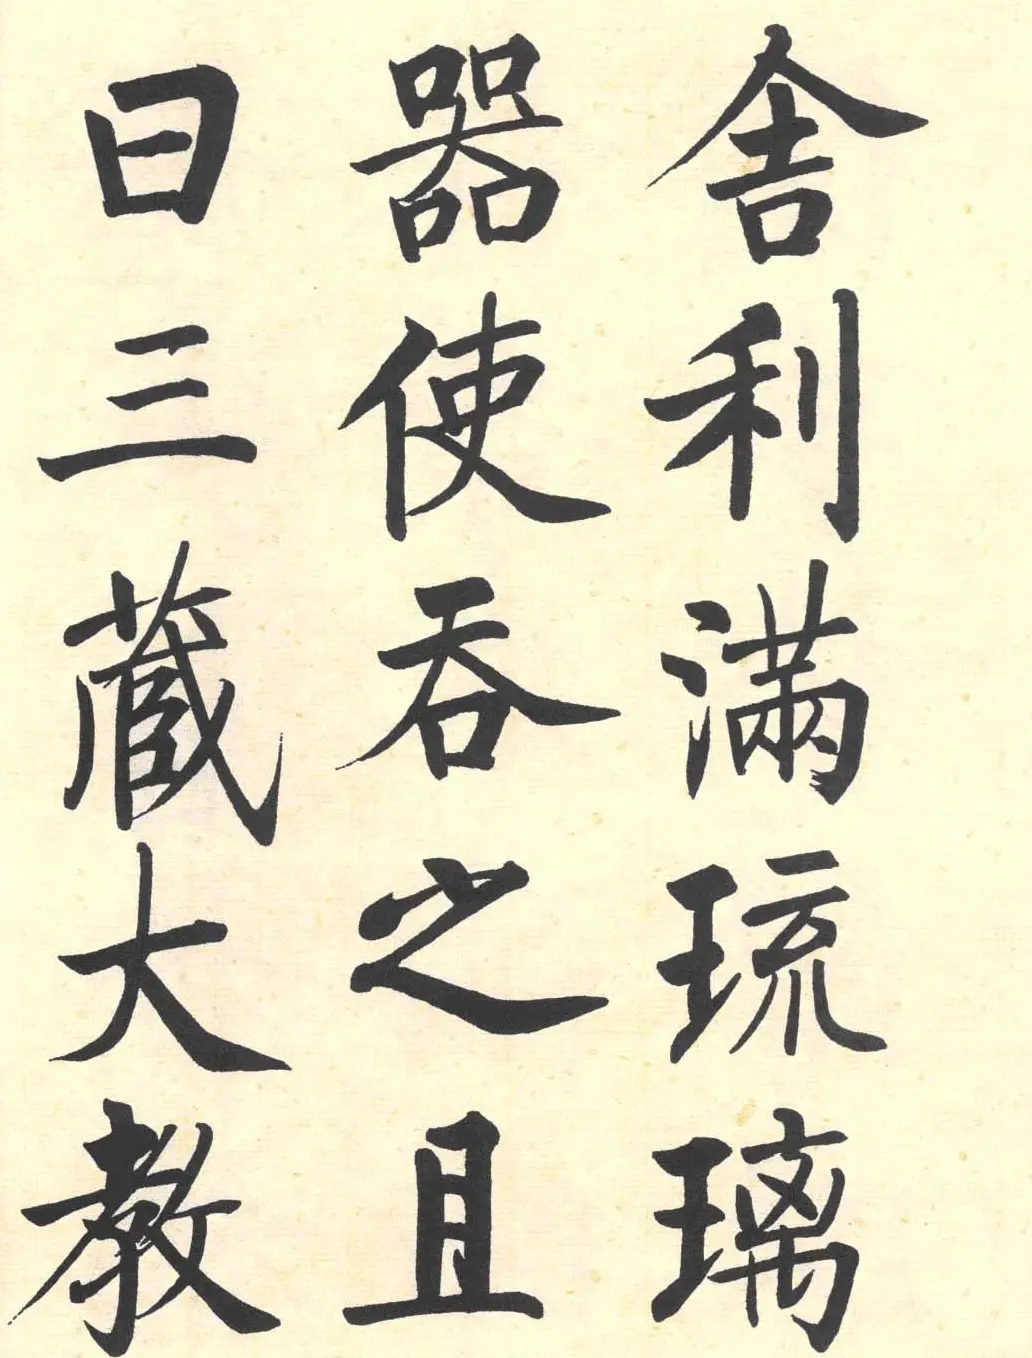 舎利滿琉璃
器使吞之且
曰三蔵大教